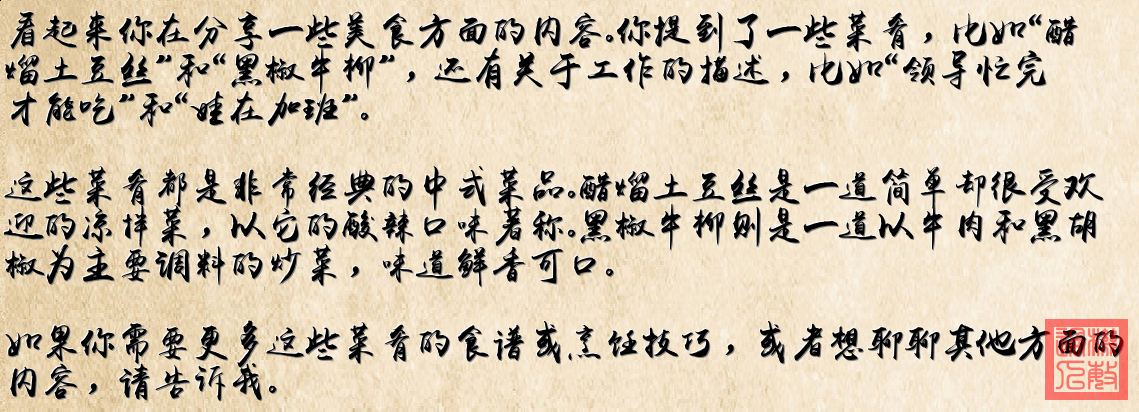 看起来你在分享一些美食方面的内容。你提到了一些菜肴，比如“醋
熘土豆丝”和“黑椒牛柳”，还有关于工作的描述，比如“领导忙完
才能吃”和“娃在加班”。
这些菜肴都是非常经典的中式菜品。醋熘土豆丝是一道简单却很受欢
迎的凉拌菜，以它的酸辣口味著称。黑椒牛柳则是一道以牛肉和黑胡
椒为主要调料的炒菜，味道鲜香可口。
如果你需要更多这些菜肴的食谱或烹饪技巧，或者想聊聊其他方面的
内容，请告诉我。